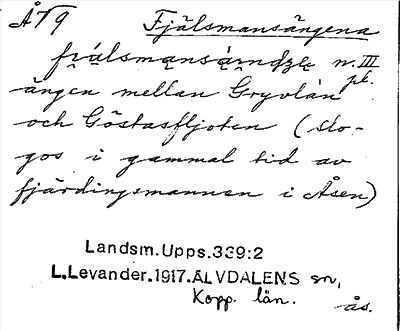 ÅT9 Fjälsmansängena
fjälsmansä̀rnḍɀɛ n. III pl.
ängen mellan Gryvlån
och Göstasfljoten (slo-
gos i gammal tid av
fjärdingsmannen i Åsen)
Landsm.Upps.339:2
L.Levander.1917.ÄLVDALENS sn,
Kopp. län.
ås.